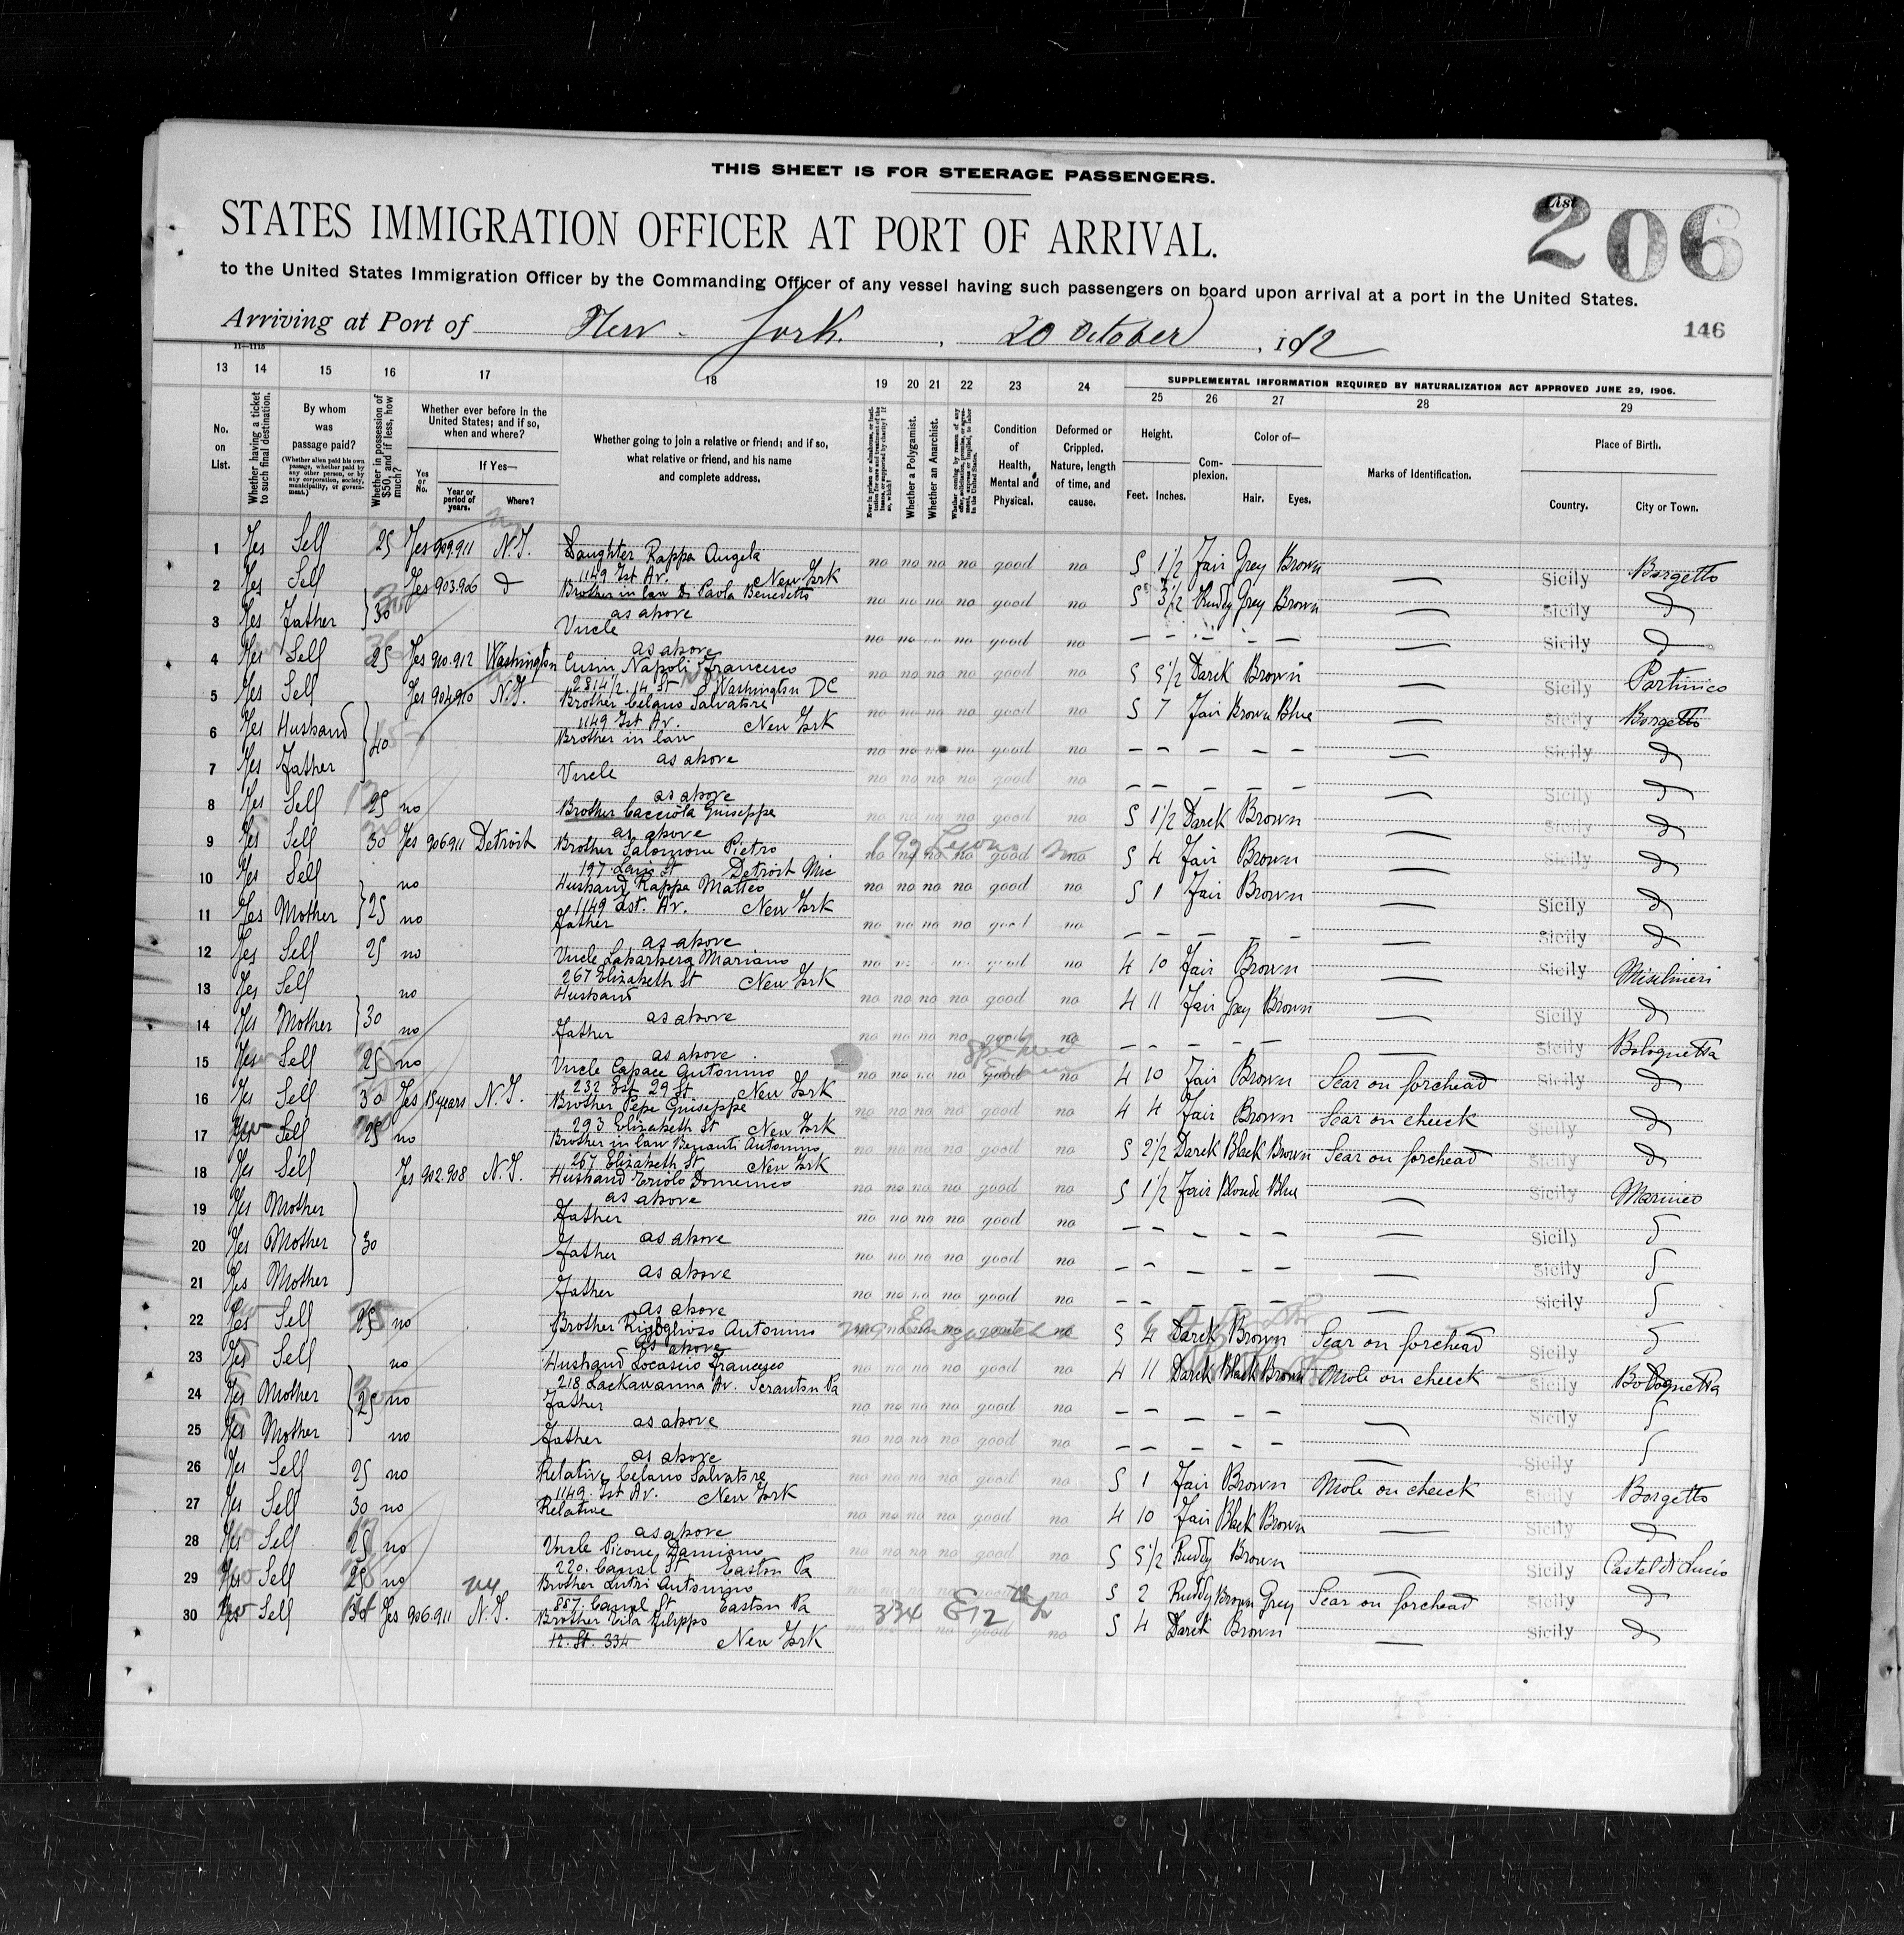 THIS SHEET IS FOR STEERAGE PASSENGERS.
STATES IMMIGRATION OFFICER AT PORT OF ARRIVAL.
List
206
to the United States Immigration Officer by the Commanding Officer of any vessel having such passengers on board upon arrival at a port in the United States.
Arriving at Port of New-York. , 20 October , 1912
146
11—1115
13 14 15 16 17 18 19 20 21 22 23 24 SUPPLEMENTAL INFORMATION REQUIRED BY NATURALIZATION ACT APPROVED JUNE 29, 1906.
25 26 27 28 29
No. on List.
Whether having a ticket to such final destination.
By whom was passage paid?
(Whether alien paid his own passage, whether paid by any other person, or by any corporation, society, municipality, or government.)
Whether in possession of $50, and if less, how much?
Whether ever before in the United States; and if so, when and where?
Yes or No.
If Yes—
Year or period of years.
Where?
Whether going to join a relative or friend; and if so, what relative or friend, and his name and complete address.
Whether a Polygamist.
Whether an Anarchist.
Condition of Health, Mental and Physical.
Deformed or Crippled. Nature, length of time, and cause.
Height.
Feet. Inches.
Complexion.
Color of—
Hair. Eyes.
Marks of Identification.
Place of Birth.
Country. City or Town.
1 Yes Self 25 Yes 909.911 N.Y. Daughter Rappa Angela no no no no good no 5 1 1/2 Fair Grey Brown — Sicily Borgetto
1149 1st Av. New York
2 Yes Self Yes 903.906 d Brother in law Di Paola Benedetto no no no no good no 5 3 1/2 Ruddy Grey Brown — Sicily d
as above
3 Yes Father 30 Uncle no no good no — — — — — — Sicily d
as above
4 Yes Self 25 Yes 910.912 Washington Cusin Napoli Francesco no no no no good no 5 5 1/2 Darck Brown — Sicily Partinico
2814 1/2. 14 St Washington DC
5 Yes Self Yes 904.910 N.Y. Brother Celano Salvatore no no no no good no 5 7 Fair Brown Blue — Sicily Borgetto
1149 1st Av. New York
6 Yes Husband 40 Brother in law no no no no good no — — — — — — Sicily d
as above
7 Yes Father Uncle no no no no good no — — — — — — Sicily d
as above
8 Yes Self 25 no Brother Cacciola Guiseppe no no no no good no 5 1 1/2 Darck Brown — Sicily d
as above
9 Yes Self 30 Yes 906911 Detroit Brother Salomone Pietro no no no no good no 5 4 Fair Brown — Sicily d
197 St Detroit Mic
10 Yes Self no Husband Rappa Matteo no no no no good no 5 1 Fair Brown — Sicily d
1149 1st. Av. New York
11 Yes Mother 25 no Father no no no no good no — — — — — — Sicily d
as above
12 Yes Self 25 no Uncle Mariano no good no 4 10 Fair Brown — Sicily Misilmeri
267 Elizabeth St New York
13 Yes Self no Husband no no no no good no 4 11 Fair Grey Brown — Sicily d
as above
14 Yes Mother 30 no Father no no no no good no — — — — — — Sicily Bolognetta
as above
15 Yes Self 25 no Uncle Capace Antonino no no no no good no 4 10 Fair Brown Scar on forehead Sicily d
232 Est 29 St New York
16 Yes Self 30 Yes 18 years N.Y. Brother Pepe Guiseppe no no no no good no 4 4 Fair Brown Scar on cheeck Sicily d
293 Elizabeth St New York
17 Self 25 no Brother in law Benanti Antonino no no no no good no 5 2 1/2 Darck Black Brown Scar on forehead Sicily d
267 Elizabeth St New York
18 Yes Self Yes 902.908 N.Y. Husband Triolo Domenico no no no no good no 5 1 1/2 Fair Blonde Blue — Sicily Marineo
as above
19 Yes Mother Father no no no no good no — — — — — — Sicily
as above
20 Yes Mother 30 Father no no no no good no — — — — — — Sicily
as above
21 Yes Mother Father no no no no good no — — — — — — Sicily
as above
22 Yes Self 25 no Brother Antonino 5 4 Darck Brown Scar on forehead Sicily
as above
23 Yes Self no Husband Locascio Francesco no no no no good no 4 11 Darck Black Brown Mole on cheeck Sicily Bolognetta
218 Lackawanna Av. Scranton Pa
24 Yes Mother 25 no Father no no no no good no — — — — — — Sicily
as above
25 Yes Mother no Father no no no no good no — — — — — — Sicily
as above
26 Yes Self 25 no Relative Celano Salvatore no no no no good no 5 1 Fair Brown Mole on cheeck Sicily Borgetto
1149. 1st Av. New York
27 Yes Self 30 no Relative no no no no good no 4 10 Fair Black Brown — Sicily d
as above
28 Yes Self 25 no Uncle Picone Damiano no no no no good no 5 5 1/2 Ruddy Brown — Sicily Castel di Lucio
220. Canal St Easton Pa
29 Yes Self 25 no Brother Lutri Antonino no no no no good no 5 2 Ruddy Brown Grey Scar on forehead Sicily d
887. Canal St Easton Pa
30 Yes Self Yes 906.911 N.Y. Brother Filippo 334 E 12 no no no no good no 5 4 Darck Brown — Sicily d
12. St. 334 New York